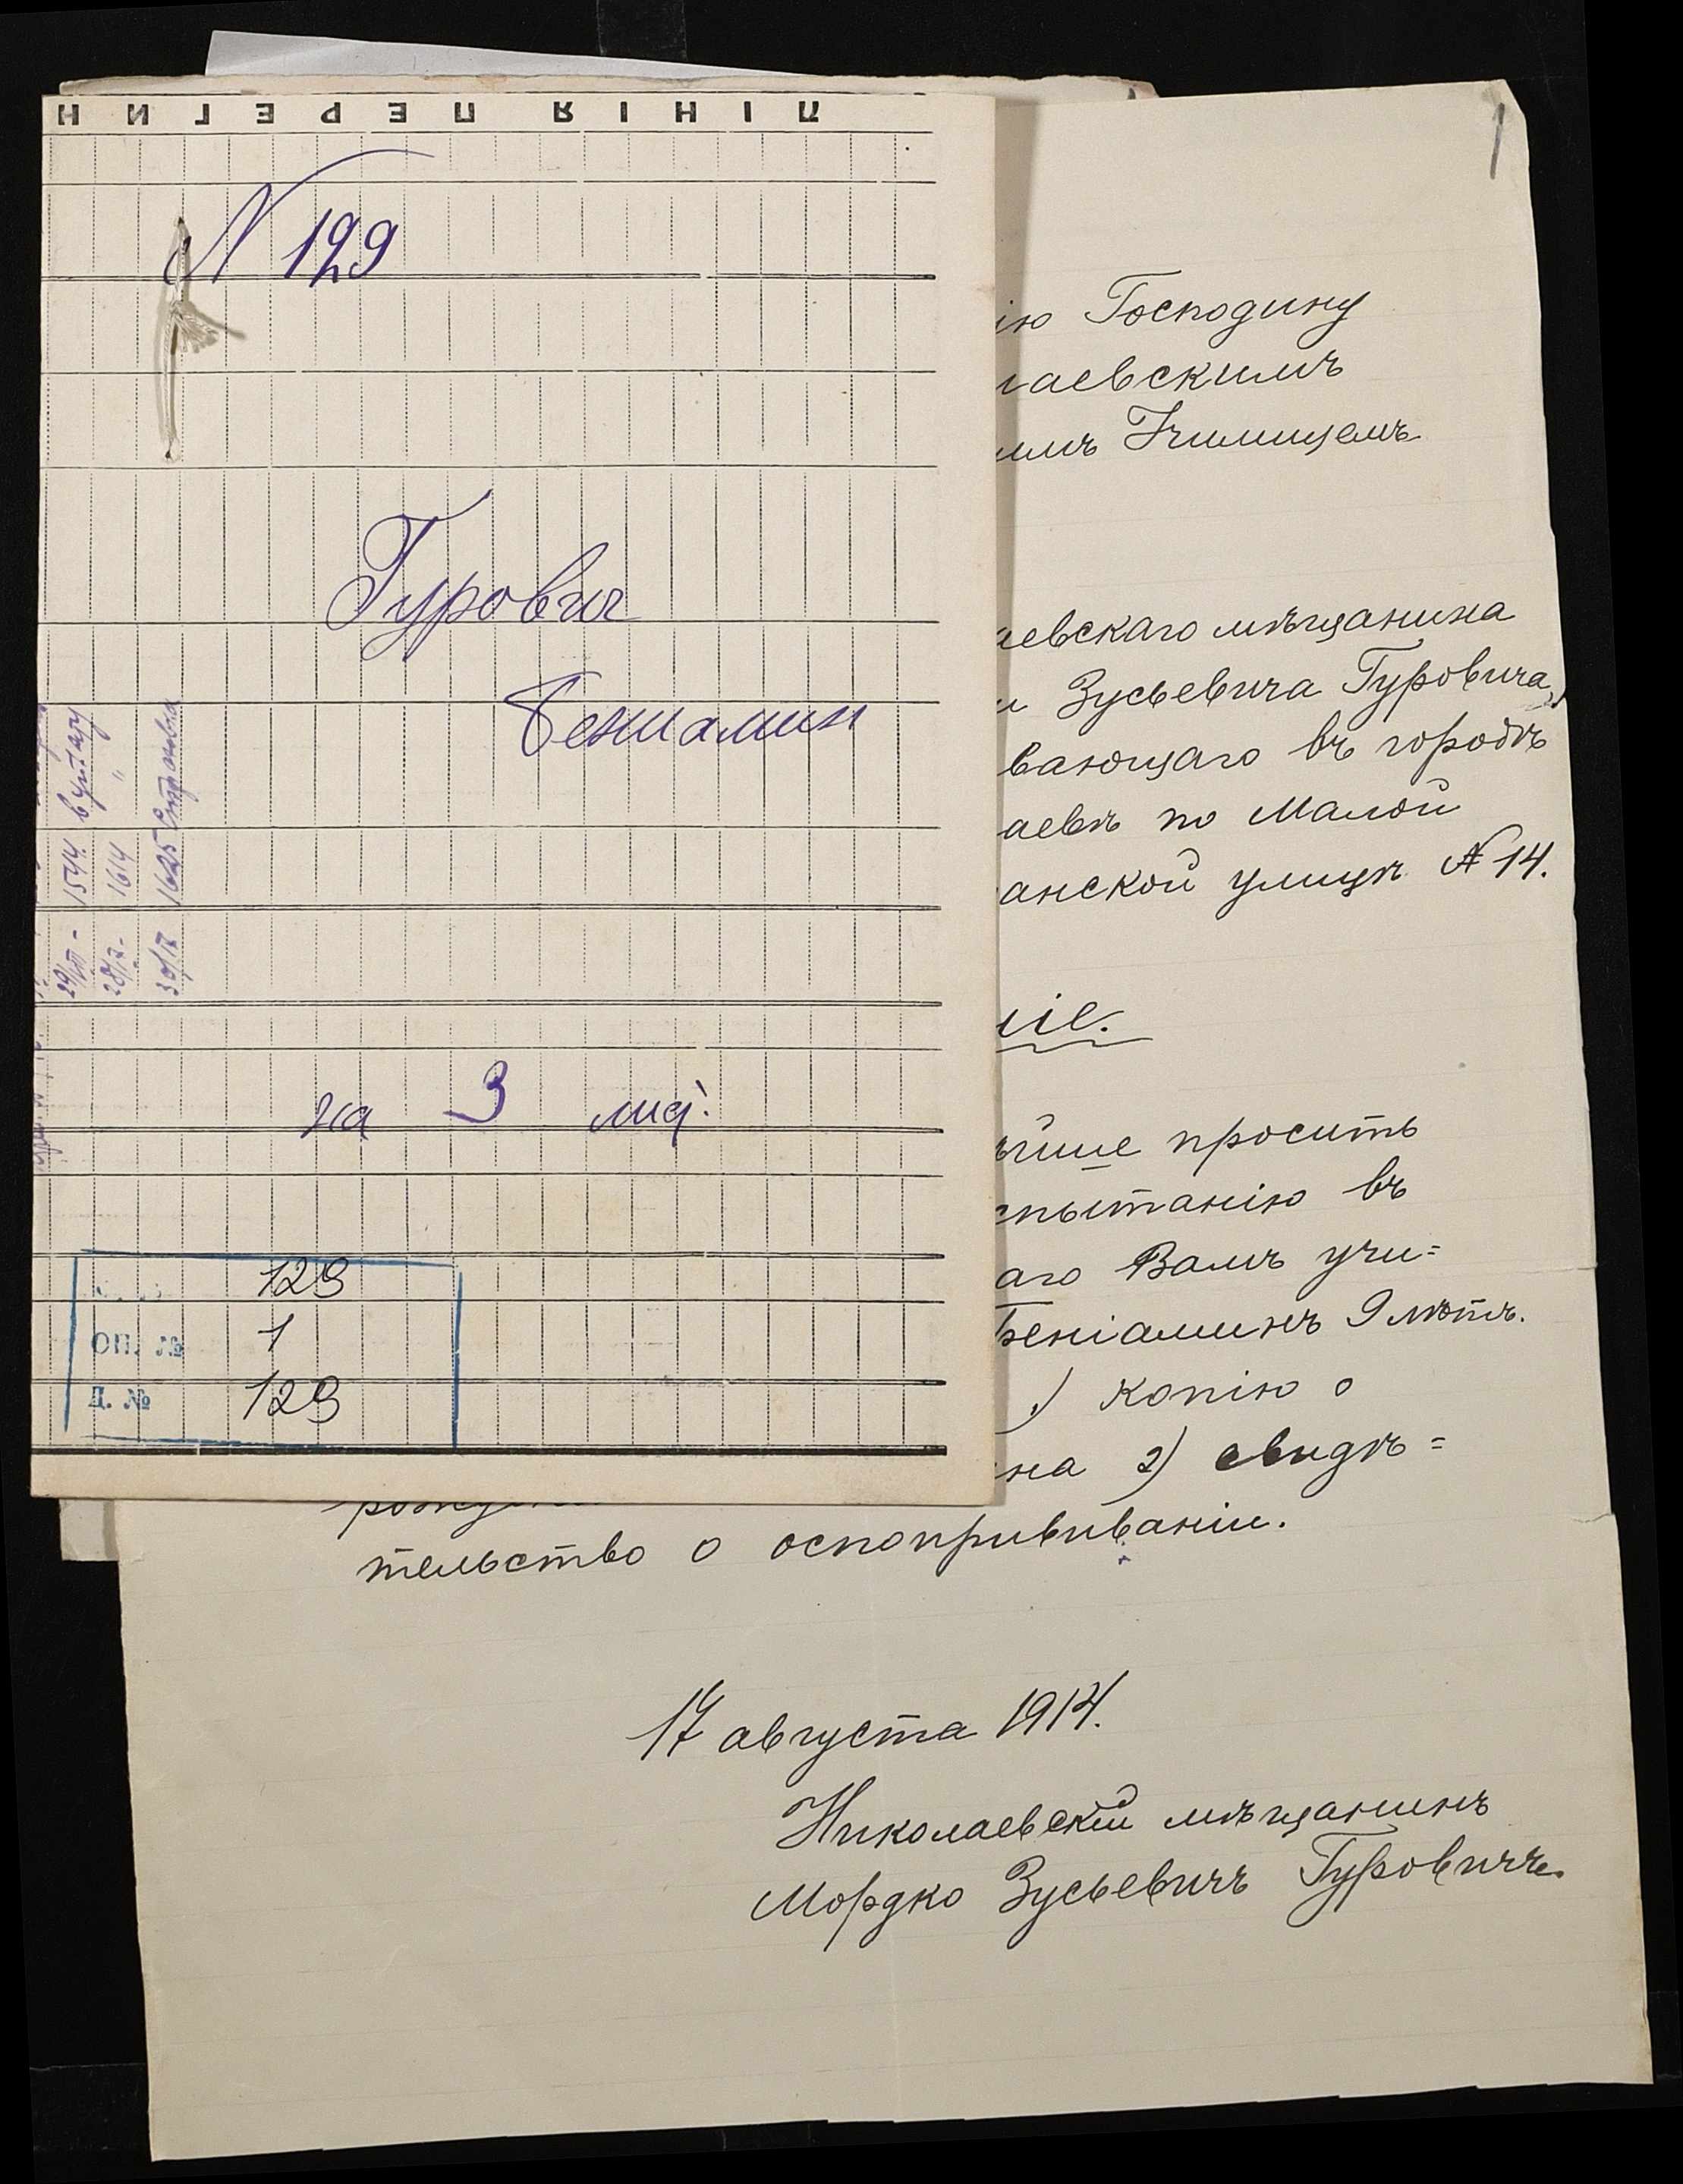 ПІНІЯ ПЕРЕГИН
N 129
Гурович
Бениамин
1544 в унтару
1614 "
30/IX 1625
на 3
129
ОП. № 1
Д. № 129
1
ію Господину
лаевскимъ
имъ Училищемъ
аевскаго мѣщанина
и Зусьевича Гуровича,
вающаго въ городѣ
аевѣ по Малой
анской улицѣ № 14.
ніе.
ѣйше просить
спытанію въ
аго Вамъ учи=
Беніаминъ 9 лѣтъ.
1) копію о
на 2) свидѣ=
тельство о оспопрививаніи.
17 августа 1914.
Николаевскій мѣщанинъ
Мордко Зусьевичъ Гуровичъ.